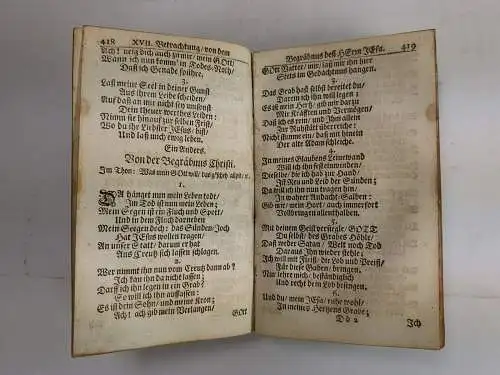 418 XVII. Betrachtung/ von dem
Ach! neig dich auch zu mir/ mein GOtt/
Wann ich nun komm' in Todes-Noth/
Daß ich Genade spühre.
3.
Laß meine Seel in deiner Gunst
Aus ihrem Leibe scheiden/
Auf daß an mir nicht sey umsonst
Dein theuer werthes Leiden:
Nimm sie hinauf zur selben Frist/
Wo du ihr Liebster JEsus/ bist/
Und laß mich ewig leben.
Ein Anders.
Von der Begräbnus Christi.
Im Thon: Was mein GOtt will/ das g'scheh
1.
DA hänget nun mein Leben todt/
Im Tod ist nun mein Leben;
Mein Segen ist ein Fluch und Spott/
Und in dem Fluch darneben
Mein Segen doch: das Sünden-Joch
Hat JEsus wollen tragen/
An unser Statt/ darum er hat
Ans Creutz sich lassen schlagen.
2.
Wer nimmt ihn nun vom Creutz dann ab?
Ich kan ihn da nicht lassen;
Darff ich ihn legen in ein Grab?
So will ich ihn auffassen:
Es ist dein Sohn/ und meine Kron;
Ach! ach gib mein Verlangen/
GOtt
Begräbnus deß HErrn JEsu. 419
GOtt Vatter/ mir/ laß mir ihn hier
Stets im Gedächtnus hangen.
3.
Das Grab daß selbst bereitet du/
Darein ich ihn will legen:
Es ist mein Hertz/ gib mir darzu
Mit Kräfften und Vermögen/
Daß ich es rein/ und ihn allein
Zur Ruhstätt überreiche:
Nicht stumm drein/ daß mit herein
Der alte Adam schleiche.
4.
In meines Glaubens Leinewand
Will ich ihn fest einwinden/
Dieselbe/ die ich hab zur Hand/
Ist Reu und Leid der Sünden;
Da will ich ihn nun tragen hin/
In wahrer Andacht-Salben:
Gib mir/ mein Hort/ auch immerfort
Vollbringen allenthalben.
5.
Mit deinem Geist versiegle/ GOTT
Du selbst/ des Grabes Höhle/
Daß weder Satan/ Welt noch Tod
Daraus Ihn wieder stehle:
Ich will mit Fleiß/ dir Lob und Preiß/
Für diese Gaben/ bringen.
Nur lehre mich/ beständiglich
Und recht dein Lob besingen.
6.
Und du/ mein JEsu/ ruhe wohl/
In meines Hertzens Grabe;
Dd 2 Ich